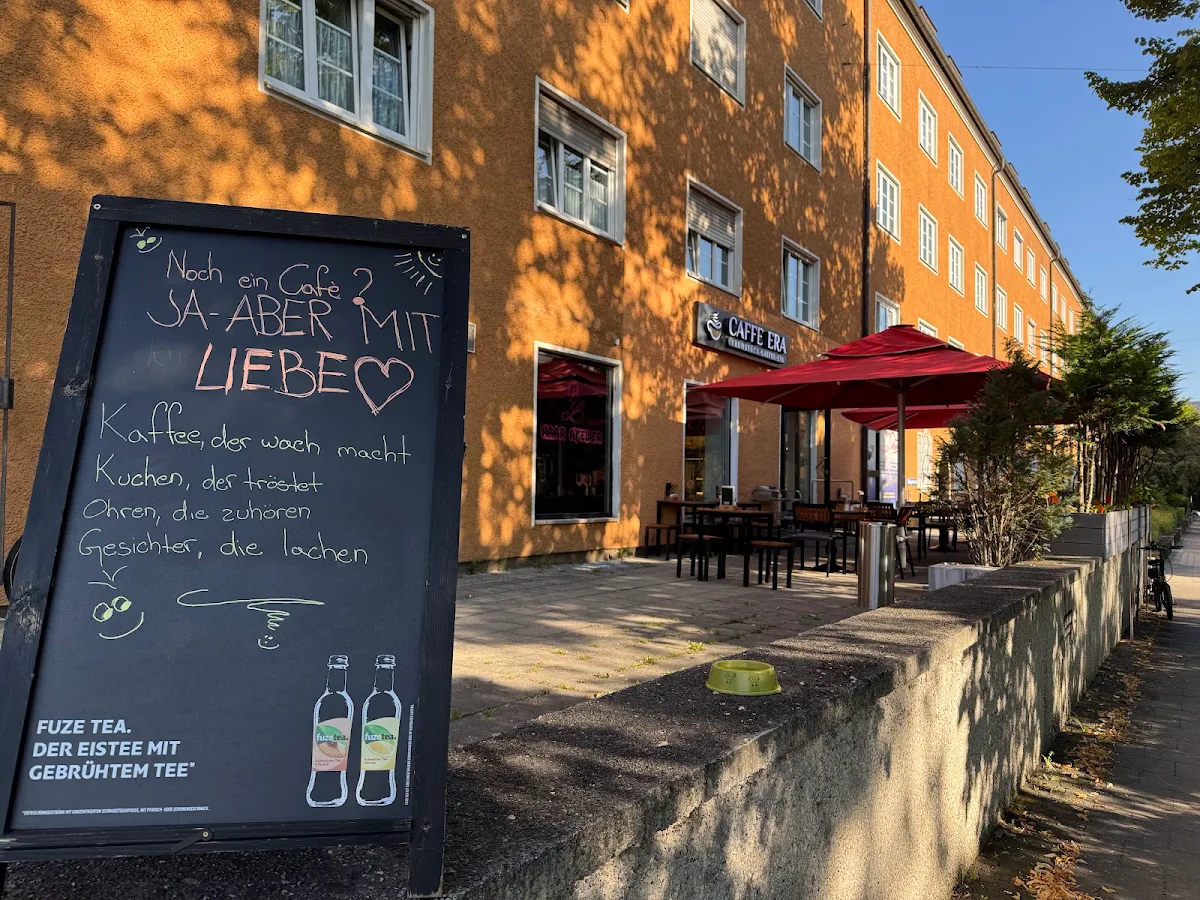 Noch ein Cafè?
JA-ABER MIT
LIEBE
Kaffee, der wach macht
Kuchen, der tröstet
Ohren, die zuhören
Gesichter, die lachen
FUZE TEA.
DER EISTEE MIT
GEBRÜHTEM TEE*
fuzetea.
fuzetea.
CAFFE ERA
FRÜHSTÜCK-KAFFEE-EIS
HAAR ATELIER